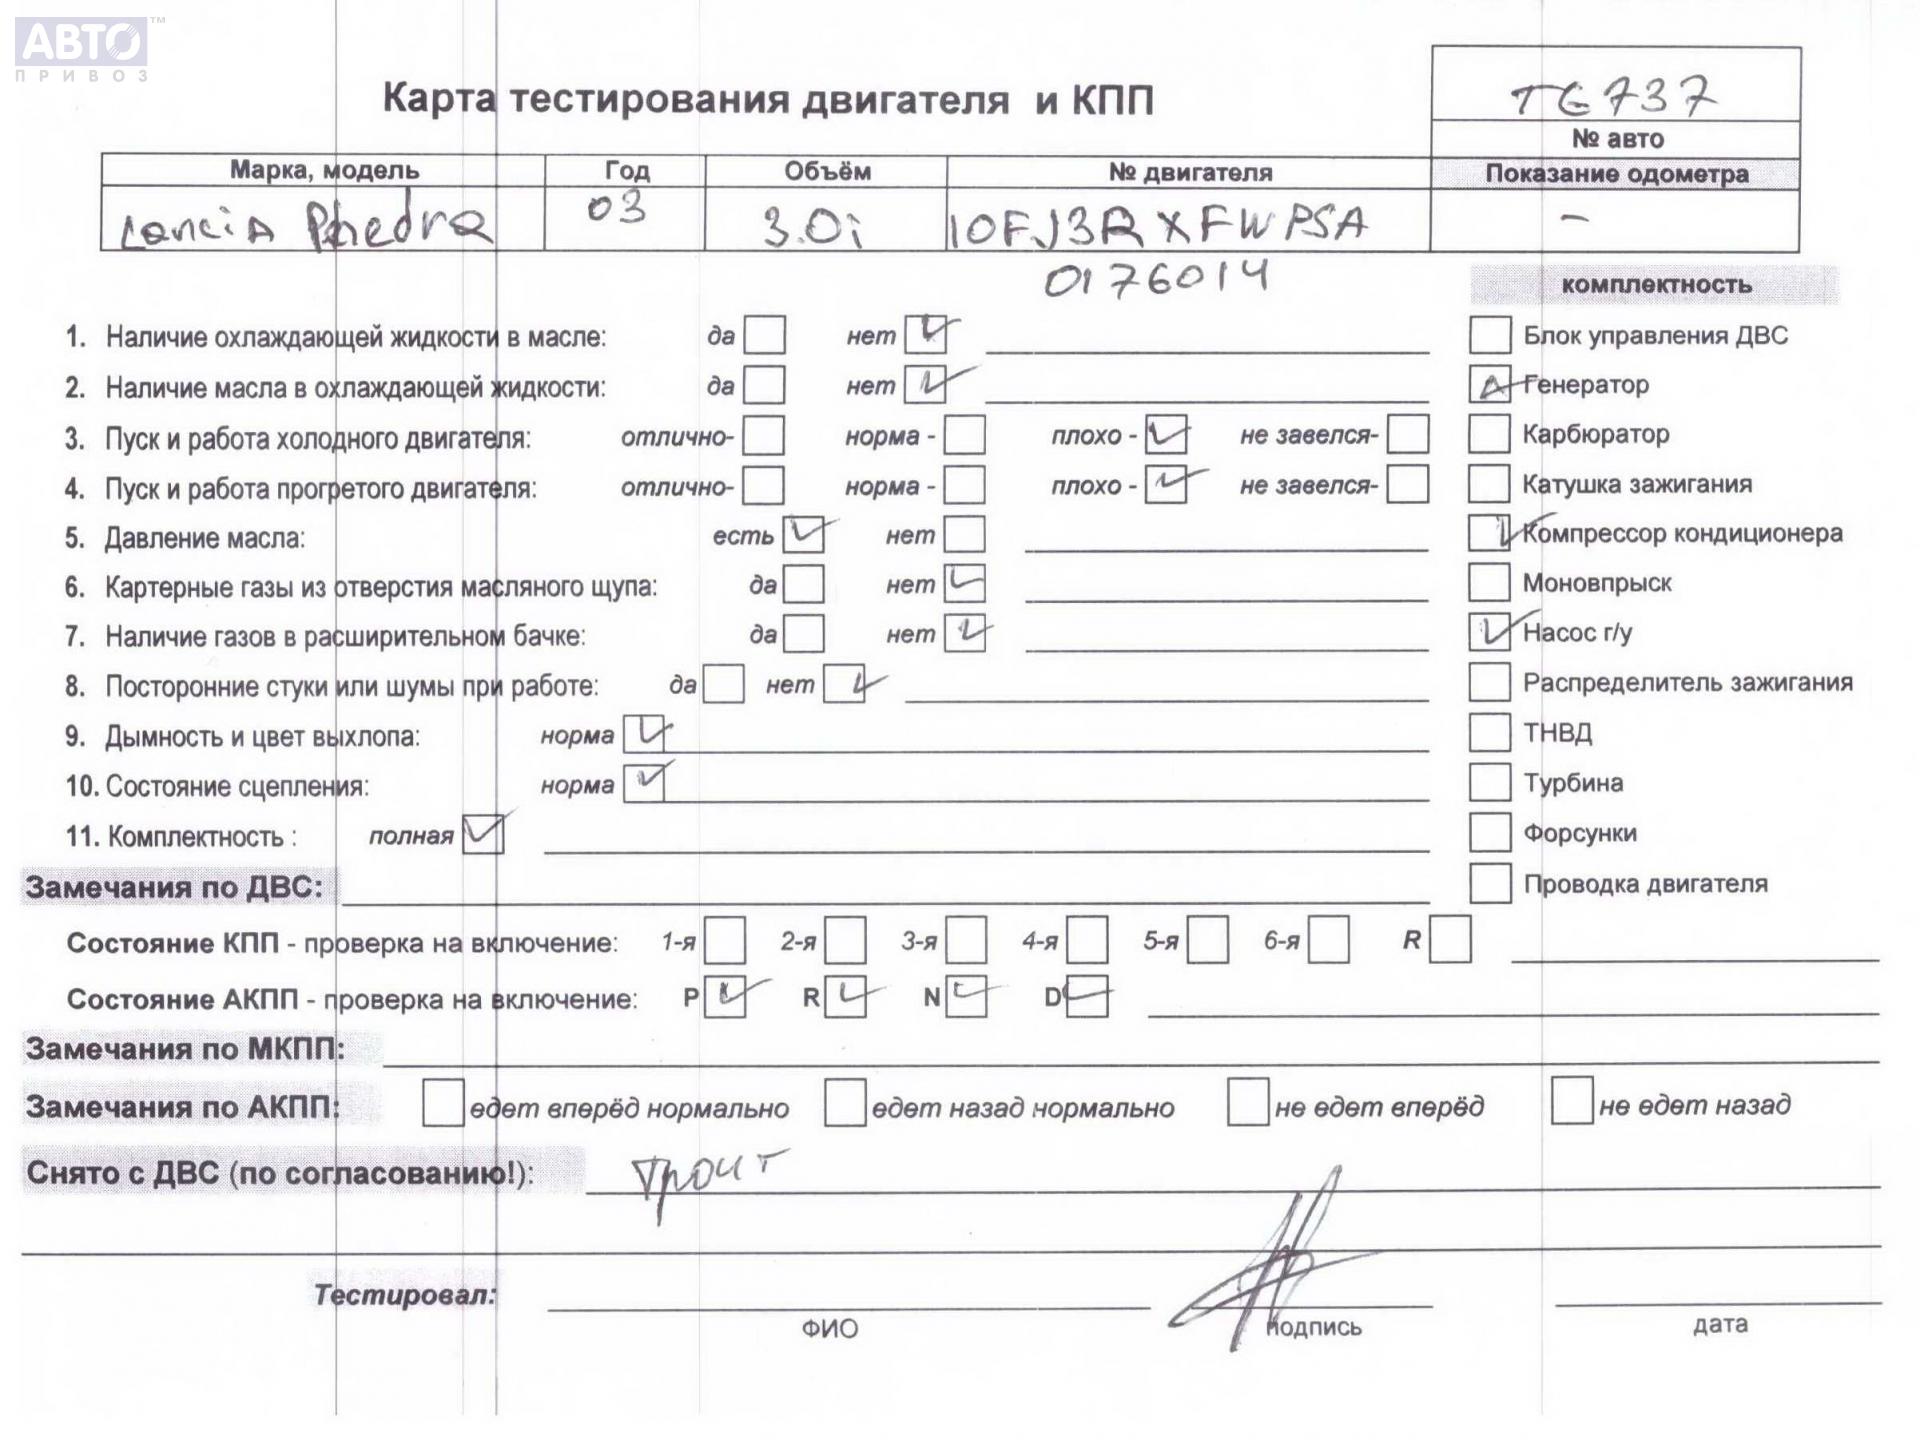 АВТО™
ПРИВОЗ
Карта тестирования двигателя и КПП
TG737
№ авто
Марка, модель Год Объём № двигателя Показание одометра
Lancia Phedra 03 3.0i 10FJ3RXFWPSA –
0176014
комплектность
1. Наличие охлаждающей жидкости в масле: да нет Блок управления ДВС
2. Наличие масла в охлаждающей жидкости: да нет Генератор
3. Пуск и работа холодного двигателя: отлично- норма - плохо - не завелся- Карбюратор
4. Пуск и работа прогретого двигателя: отлично- норма - плохо - не завелся- Катушка зажигания
5. Давление масла: есть нет Компрессор кондиционера
6. Картерные газы из отверстия масляного щупа: да нет Моновпрыск
7. Наличие газов в расширительном бачке: да нет Насос г/у
8. Посторонние стуки или шумы при работе: да нет Распределитель зажигания
9. Дымность и цвет выхлопа: норма ТНВД
10. Состояние сцепления: норма Турбина
11. Комплектность : полная Форсунки
Замечания по ДВС: Проводка двигателя
Состояние КПП - проверка на включение: 1-я 2-я 3-я 4-я 5-я 6-я R
Состояние АКПП - проверка на включение: P R N D
Замечания по МКПП:
Замечания по АКПП: едет вперёд нормально едет назад нормально не едет вперёд не едет назад
Снято с ДВС (по согласованию!): троит
Тестировал:
ФИО подпись дата